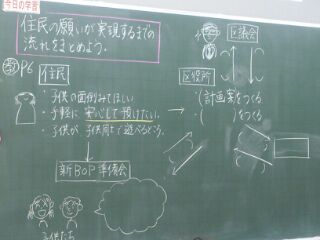 今日の学習
住民の願いが実現するまでの
流れをまとめよう。
教P6
住民
・子供の面倒みてほしい
・手軽に安心して預けたい。
・子供が子供同士で遊べるところ。
新BOP準備会
子供たち
区議会
区役所
・(計画案をつくる
・( )をつくる